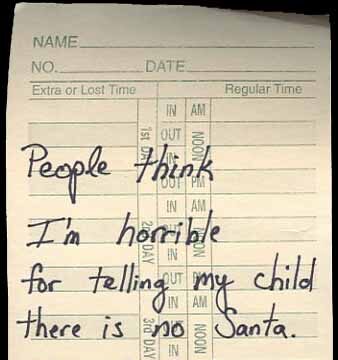 NAME
NO. DATE
Extra or Lost Time Regular Time
IN AM
1st DAY OUT NOON
People think
IN
OUT PM
IN AM
I'm horrible
2nd DAY NOON
IN
for telling my child
OUT PM
IN AM
there is no Santa.
3rd DAY NOON
IN